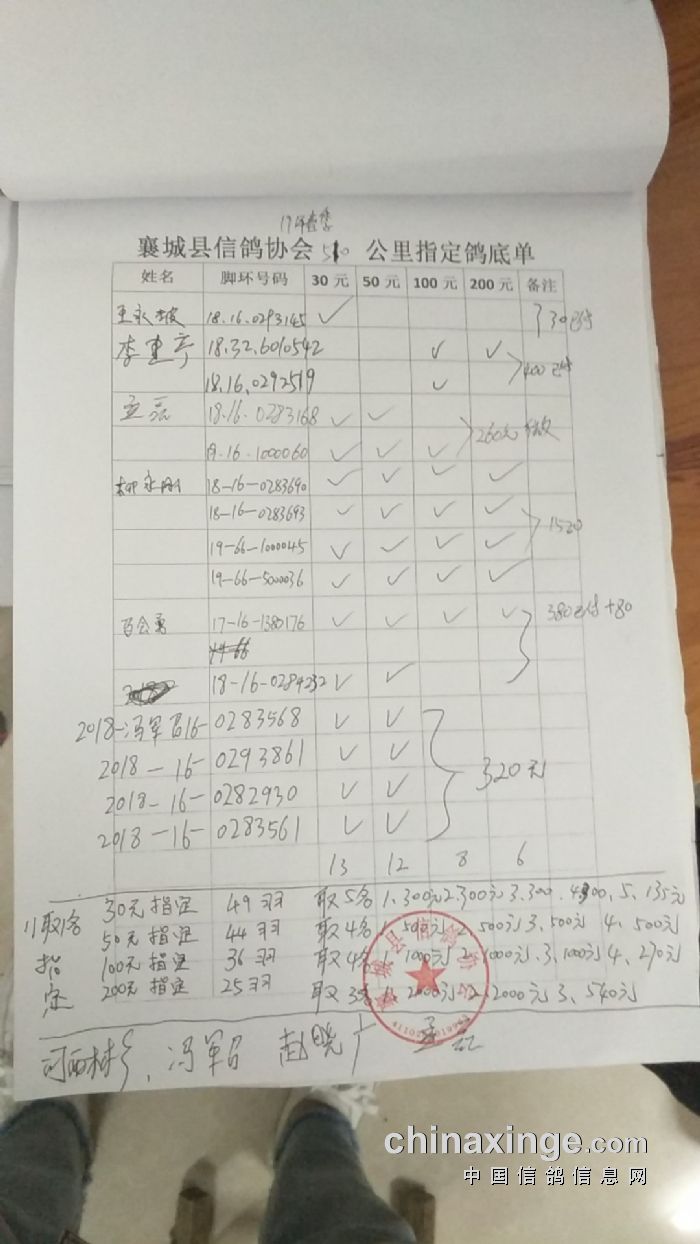 襄城县信鸽协会 510 公里指定鸽底单
姓名 脚环号码 30 元 50 元 100 元 200 元 备注
18.16.0293145 ✓ 30已付
李 18.32.6010542 ✓ ✓
18.16.0292519 ✓ 400已付
18-16-0283168 ✓ ✓
16.1000060 ✓ ✓ ✓ 260元
18-16-0283690 ✓ ✓ ✓ ✓
18-16-0283693 ✓ ✓ ✓ ✓ 1520
19-66-1000045 ✓ ✓ ✓ ✓
19-66-500036 ✓ ✓ ✓ ✓
百会勇 17-16-1380176 ✓ ✓ ✓ ✓ 380已付+80
18-16-0284232 ✓ ✓
2018-冯军昌16-0283568 ✓ ✓
2018-16-0293861 ✓ ✓ 320元
2018-16-0282930 ✓ ✓
2018-16-0283561 ✓ ✓
13 12 8 6
30元指定 49羽 取5名 1.300元2.300元3.300.4.300.5.135元
11取1名 50元指定 44羽 取4名 1.500元2.500元3.500元 4.500元
指 100元指定 36羽 取4名 1.1000元2.1000元.3.1000元4.270元
定 200元指定 25羽 取3名 1.2000元2.2000元3.540元
冯军昌 赵晓广
chinaxinge.com
中国信鸽信息网